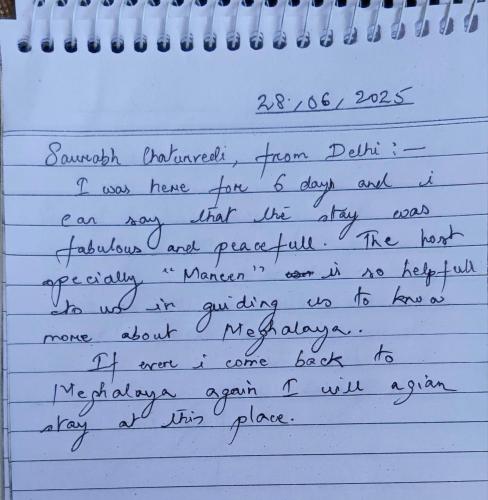 28/06/2025
Saurabh Chaturvedi, from Delhi:-
I was here for 6 days and i
can say that the stay was
fabulous and peacefull. The host
specially "Maneen" is so helpfull
to us in guiding us to know
more about Meghalaya.
If ever i come back to
Meghalaya again I will agian
stay at this place.